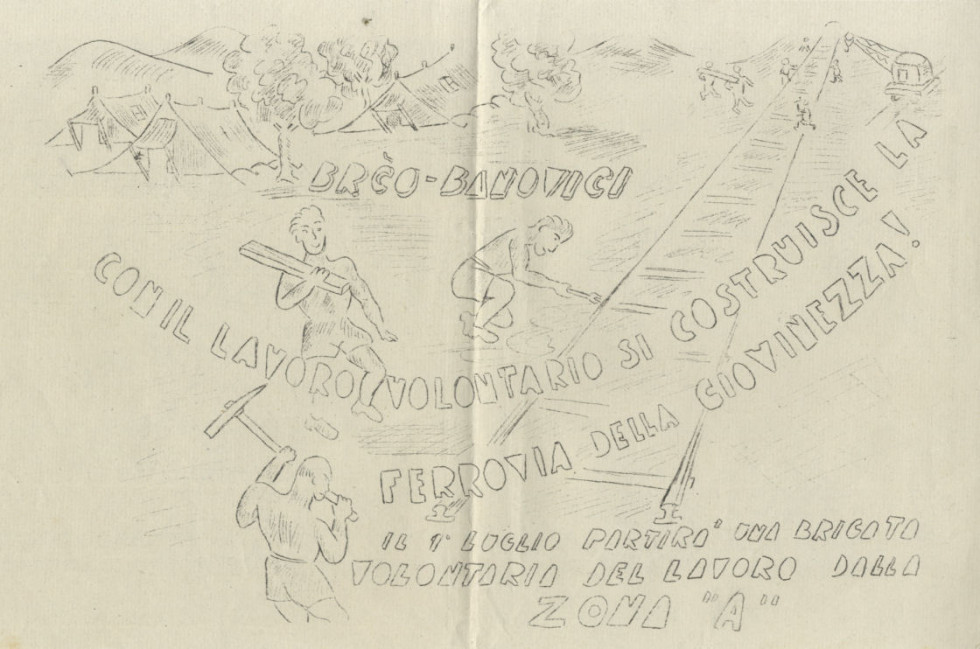 BRČO-BANOVICI
CON IL LAVORO VOLONTARIO SI COSTRUISCE LA
FERROVIA DELLA GIOVINEZZA!
IL 1° LUGLIO PARTIRA' UNA BRIGATA
VOLONTARIA DEL LAVORO DALLA
ZONA "A"